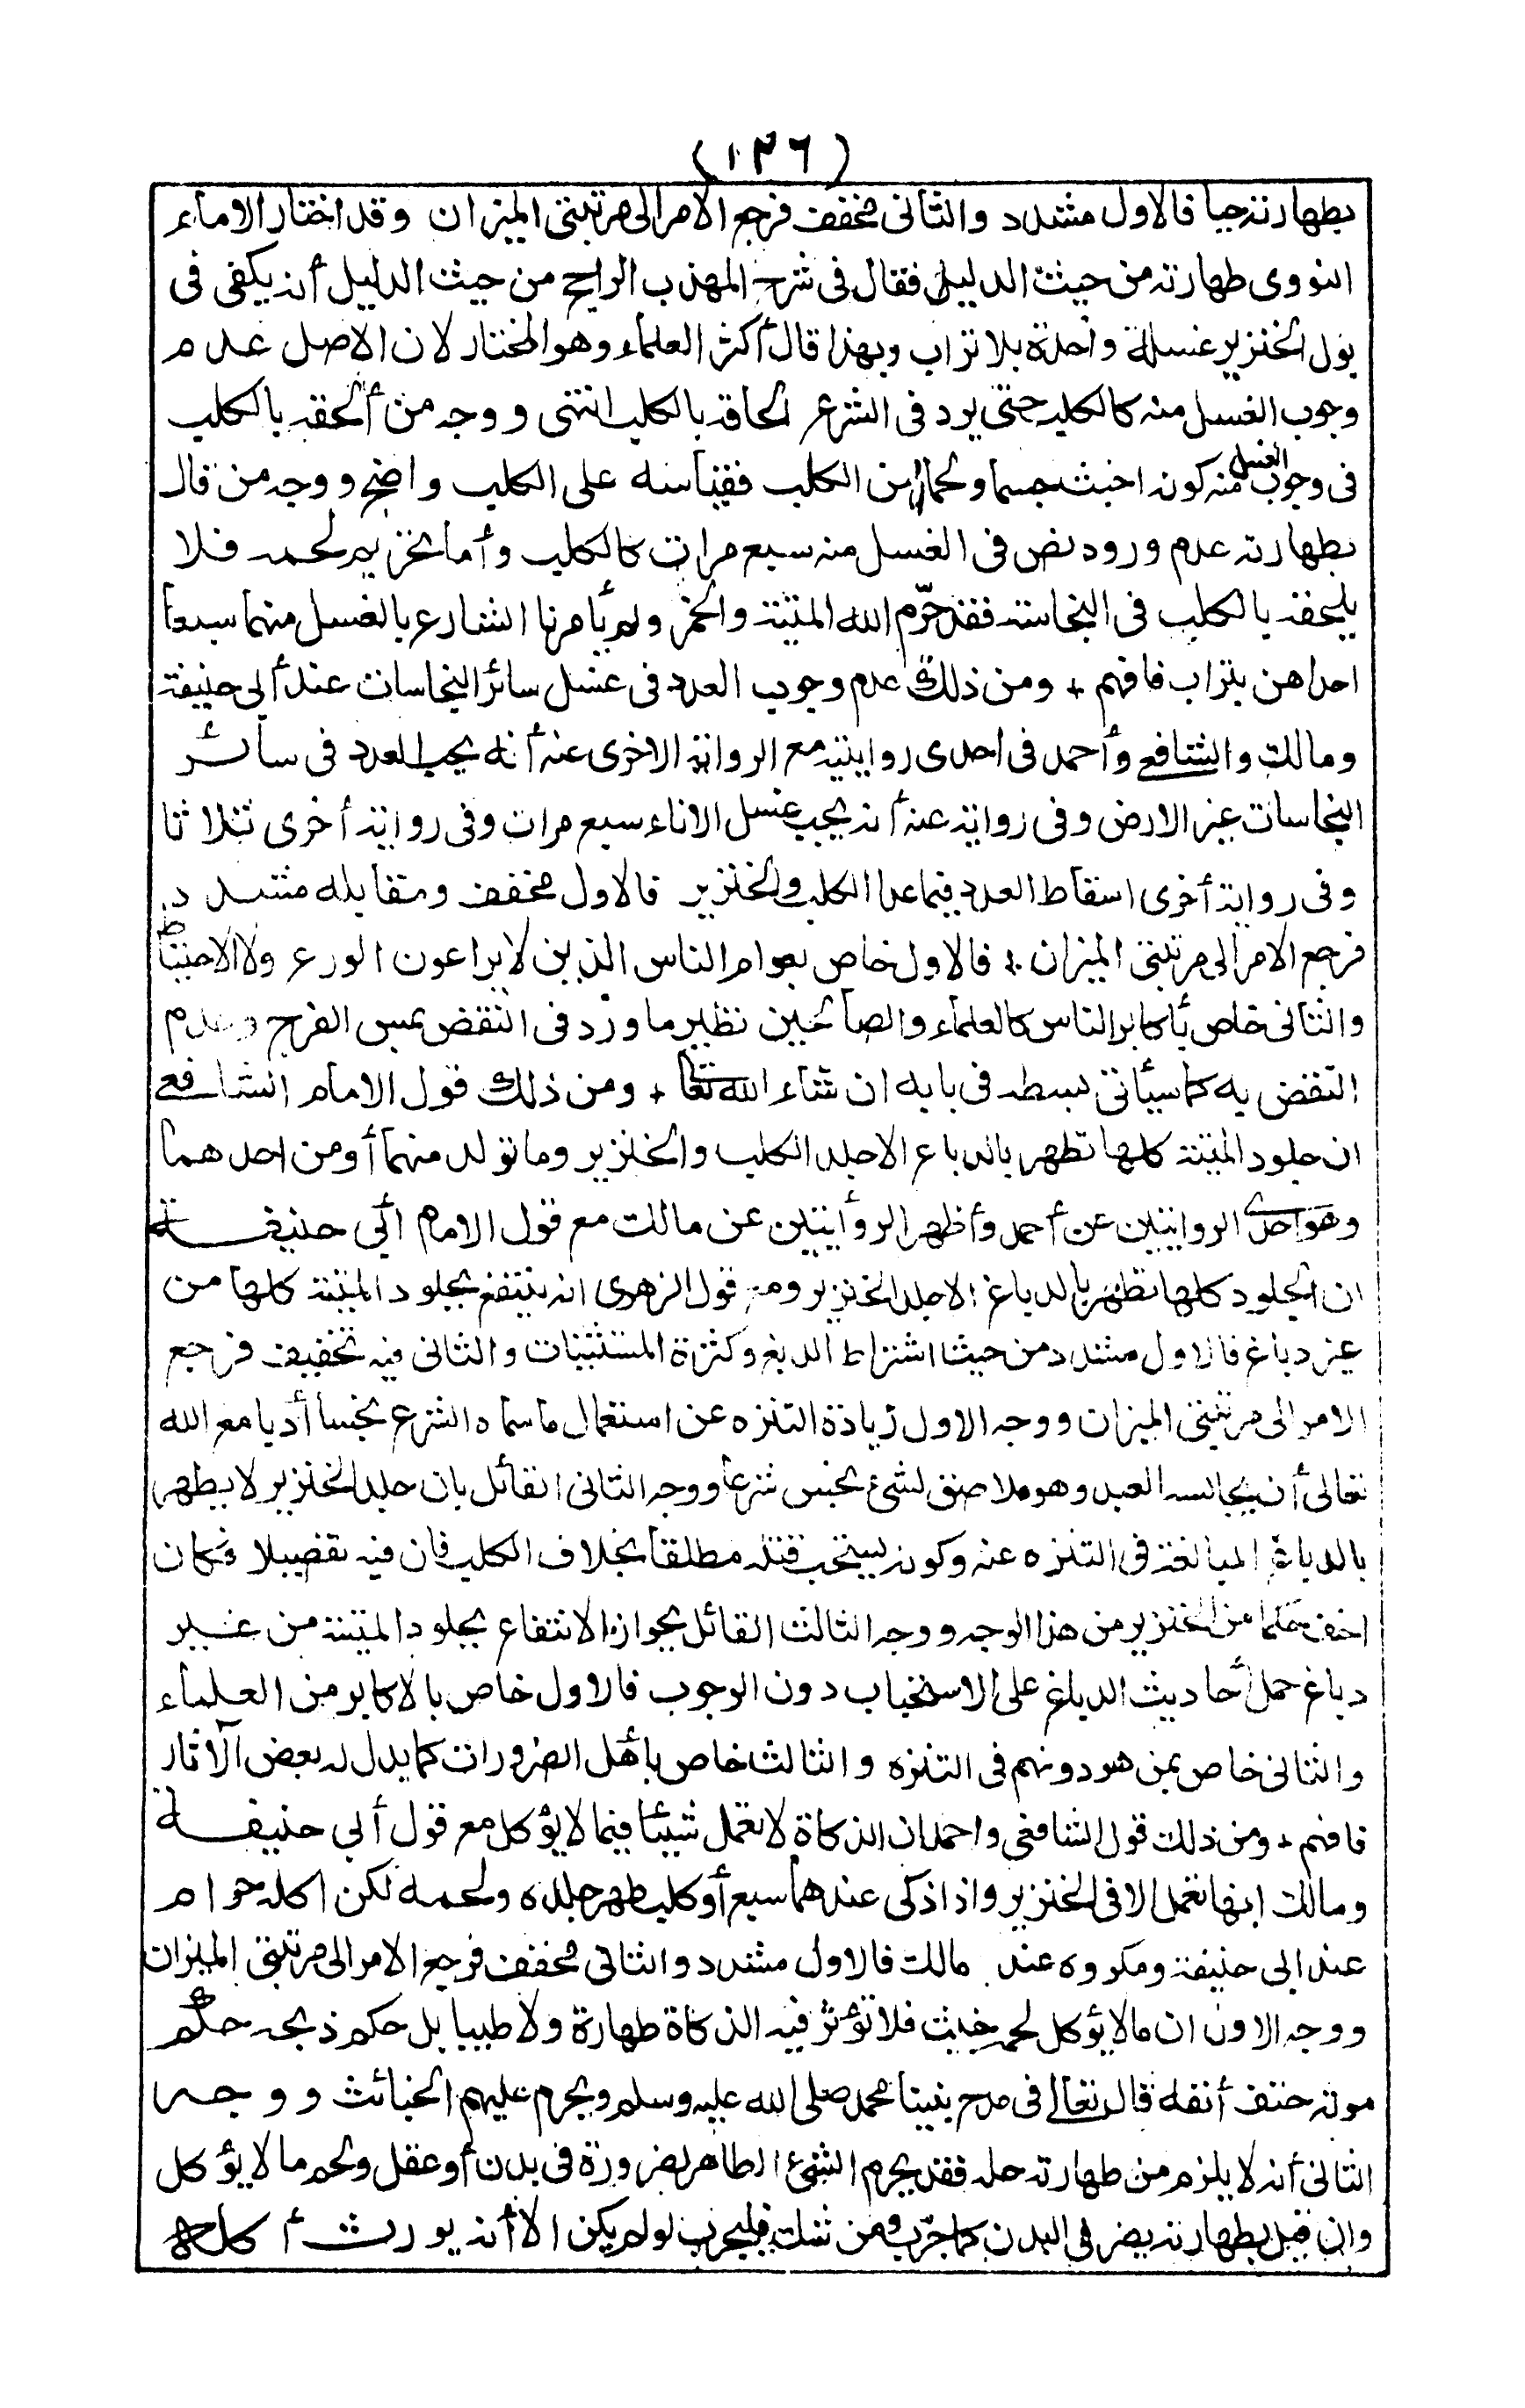 (١٣٦)
بطهارته حيا فالاول مشدد والثانى مخفف فرجع الامر الى مرتبتى الميزان وقد اختار الامام
النووى طهارته من حيث الدليل فقال فى شرح المهذب الراجح من حيث الدليل أنه يكفى فى
بول الخنزير غسلة واحدة بلا تراب وبهذا قال أكثر العلماء وهو المختار لان الاصل عدم
وجوب الغسل منه كالكلب حتى يرد فى الشرع الحاقه بالكلب انتهى ووجه من ألحقه بالكلب
فى وجوب الغسل منه كونه اخبث جسما ولحما من الكلب فقياسه على الكلب واضح ووجه من قال
بطهارته عدم ورود نص فى الغسل منه سبع مرات كالكلب وأما تحريم لحمه فلا
يلحقه بالكلب فى النجاسة فقد حرّم الله الميتة والخمر ولم يأمرنا الشارع بالغسل منهما سبعا
احداهن بتراب فافهم + ومن ذلك عدم وجوب العدد فى غسل سائر النجاسات عند أبى حنيفة
ومالك والشافعى وأحمد فى احدى روايتيه مع الرواية الاخرى عنه أنه يجب العدد فى سائر
النجاسات غير الارض وفى رواية عنه أنه يجب غسل الاناء سبع مرات وفى رواية أخرى ثلاثا
وفى رواية أخرى اسقاط العدد فيما عدا الكلب والخنزير فالاول مخفف ومقابله مشدد
فرجع الامر الى مرتبتى الميزان + فالاول خاص بعوام الناس الذين لا يراعون الورع ولا الاحتياط
والثانى خاص بأكابر الناس كالعلماء والصالحين نظير ما ورد فى النقض بمس الفرج وعدم
النقض به كما سيأتى بسطه فى بابه ان شاء الله تعا + ومن ذلك قول الامام الشافعى
ان جلود الميتة كلها تطهر بالدباغ الا جلد الكلب والخنزير وما تولد منهما أو من احدهما
وهو احدى الروايتين عن أحمد وأظهر الروايتين عن مالك مع قول الامام أبى حنيفة
ان الجلود كلها تطهر بالدباغ الا جلد الخنزير ومع قول الزهرى انه ينتفع بجلود الميتة كلها من
غير دباغ فالاول مشدد من حيث اشتراط الدبغ وكثرة المستثنيات والثانى فيه تخفيف فرجع
الامر الى مرتبتى الميزان ووجه الاول زيادة التنزه عن استعمال ما سماه الشرع نجسا أدبا مع الله
تعالى أن يجالسه العبد وهو ملاصق لشئ نجس شرعا ووجه الثانى القائل بان جلد الخنزير لا يطهر
بالدباغ المبالغة فى التنزه عنه وكونه يستحب قتله مطلقا بخلاف الكلب فان فيه تفصيلا فكان
اخف حكما من الخنزير من هذا الوجه ووجه الثالث القائل بجواز الانتفاع بجلود الميتة من غير
دباغ حمل أحاديث الدباغ على الاستحباب دون الوجوب فالاول خاص بالاكابر من العلماء
والثانى خاص بمن هو دونهم فى التنزه والثالث خاص بأهل الضرورات كما يدل له بعض الآثار
فافهم + ومن ذلك قول الشافعى واحمد ان الذكاة لا تعمل شيئا فيما لا يؤكل مع قول أبى حنيفة
ومالك انها تعمل الا فى الخنزير واذا ذكى عندهما سبع أو كلب طهر جلده ولحمه لكن اكله حرام
عند ابى حنيفة ومكروه عند مالك فالاول مشدد والثانى مخفف فرجع الامر الى مرتبتى الميزان
ووجه الاول ان ما لا يؤكل لحمه خبيث فلا تؤثر فيه الذكاة طهارة ولا طيبا بل حكم ذبحه حكم
موته حتف أنفه قال تعالى فى مدح نبينا محمد صلى الله عليه وسلم ويحرم عليهم الخبائث ووجه
الثانى أنه لا يلزم من طهارته حله فقد يحرم الشئ الطاهر لضرورة فى بدن أو عقل ولحم ما لا يؤكل
وان قيل بطهارته يضر فى البدن كما جرّب فمن شك فليجرب لو لم يكن الا أنه يورث أكله